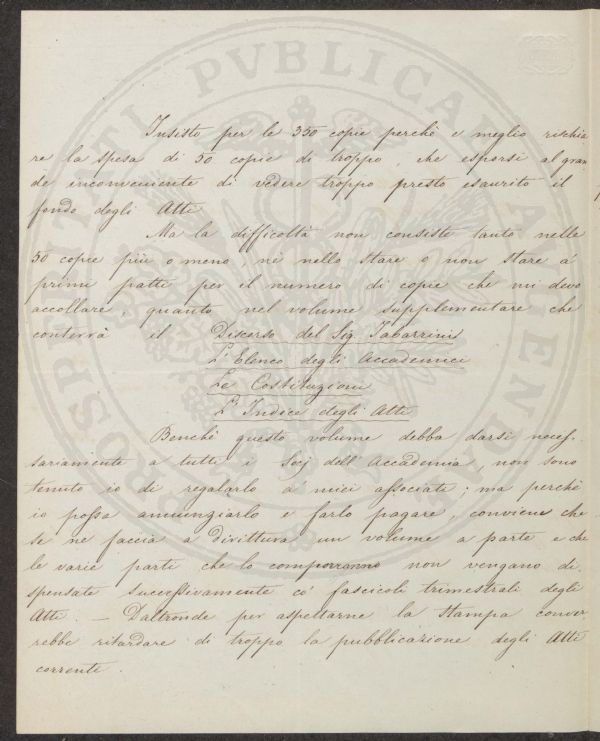 Insisto per le 350 copie perchè è meglio rischia
re la spesa di 50 copie di troppo, che esporsi al gran
de inconveniente di vedere troppo presto esaurito il
fondo degli Atti
Ma la difficoltà non consiste tanto nelle
50 copie più o meno, nè nello stare o non stare a'
primi patti per il numero di copie che mi devo
accollare, quanto nel volume supplementare che
conterrà il Discorso del Sig. Tabarrini
L'Elenco degli Accademici
Le Costituzioni
L'Indice degli Atti
Benchè questo volume debba darsi neces-
sariamente a tutti i Socj dell'Accademia, non sono
tenuto io di regalarlo a' miei associati; ma perchè
io possa annunziarlo e farlo pagare, conviene che
se ne faccia a dirittura un volume a parte e che
le varie parti che lo comporranno non vengano di-
spensate successivamente co' fascicoli trimestrali degli
Atti. — Daltronde per aspettarne la stampa conver
rebbe ritardare di troppo la pubblicazione degli Atti
corrente.